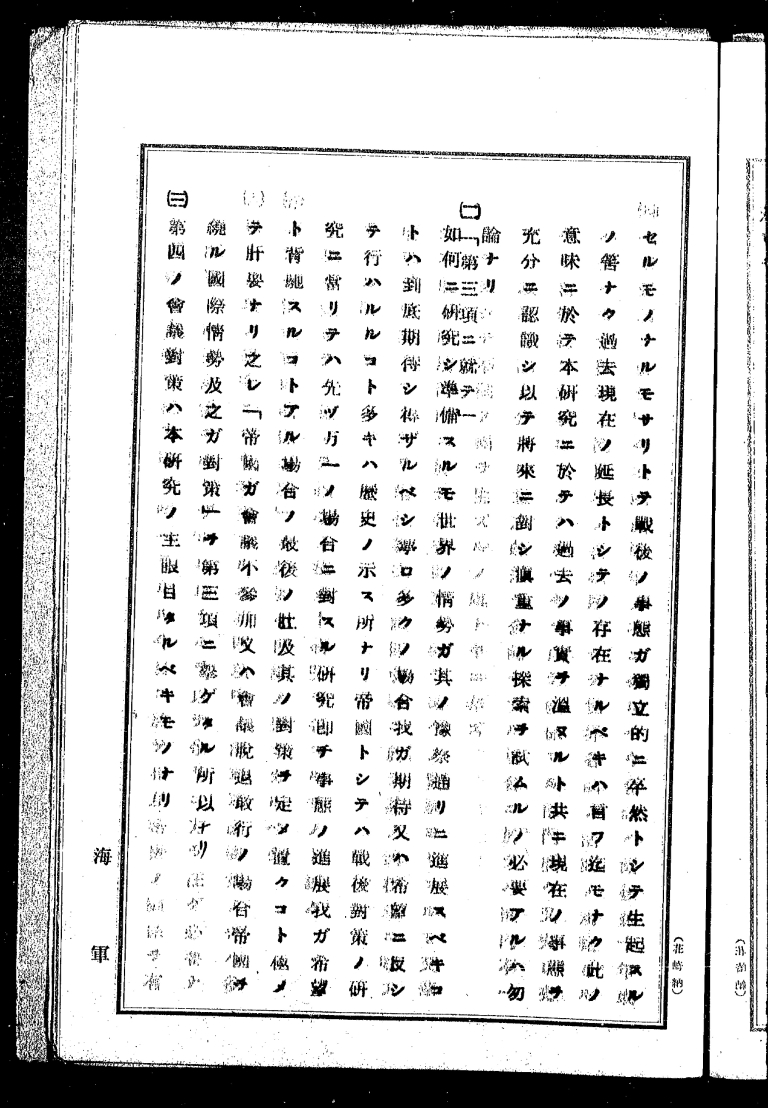 セルモノナルモサリトテ戰後ノ事態ガ獨立的ニ卒然トシテ生起スル
ノ筈ナク過去現在ノ延長トシテノ存在ナルベキハ言フ迄モナク此ノ
意味ニ於テ本研究ニ於テハ過去ノ事實ヲ溫ヌルト共ニ現在ノ事態ヲ
充分ニ認識シ以テ將來ニ對シ愼重ナル探索ヲ試ムルノ必要アルハ勿
論ナリ
㈡「第三項ニ就テ」
如何ニ研究シ準備スルモ世界ノ情勢ガ其ノ豫察通リニ進展スベキコ
トハ到底期待シ得ザルベシ寧ロ多クノ場合我ガ期待又ハ希願ニ反シ
テ行ハルルコト多キハ歷史ノ示ス所ナリ帝國トシテハ戰後對策ノ研
究ニ當リテハ先ヅ万一ノ場合ニ對スル研究卽チ事態ノ進展我ガ希望
ト背馳スルコトアル場合ノ最後ノ肚及其ノ對策ヲ定メ置クコト極メ
テ肝要ナリ之レ「帝國ガ會議不參加又ハ會議脫退敢行ノ場合帝國ヲ
繞ル國際情勢及之ガ對策」ヲ第三項ニ擧ゲタル所以ナリ
㈢第四ノ會議對策ハ本研究ノ主眼目タルベキモノナリ
海軍